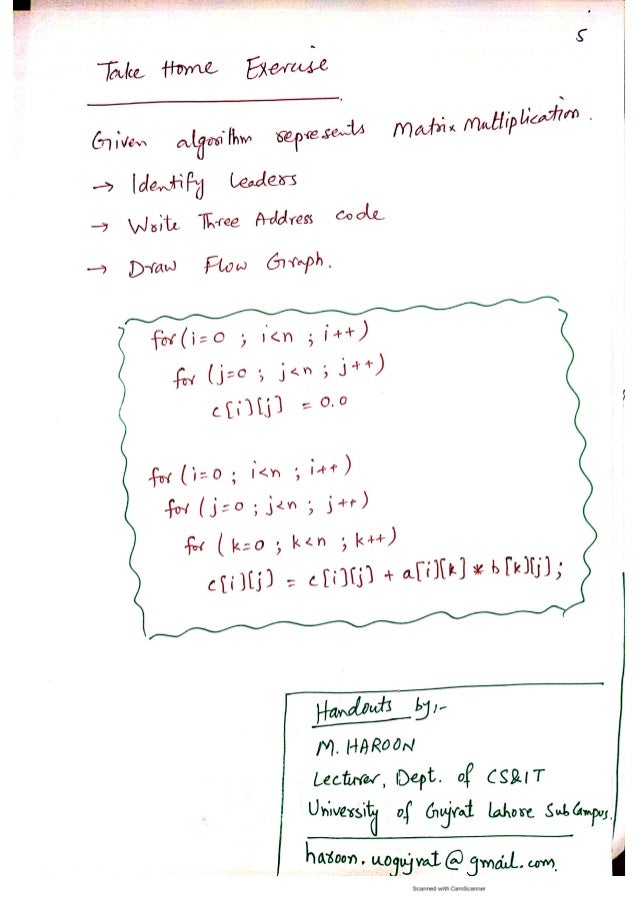 5
Take Home Exercise
Given algorithm represents Matrix Multiplication.
→ Identify leaders
→ Write Three Address code
→ Draw Flow Graph.
for(i=0 ; i<n ; i++)
for (j=0 ; j<n ; j++)
c[i][j] = 0.0
for(i=0 ; i<n ; i++)
for (j=0 ; j<n ; j++)
for (k=0 ; k<n ; k++)
c[i][j] = c[i][j] + a[i][k] * b[k][j];
Handouts by:-
M. HAROON
Lecturer, Dept. of CS&IT
University of Gujrat Lahore Sub Campus.
haroon.uogujrat@gmail.com.
Scanned with CamScanner